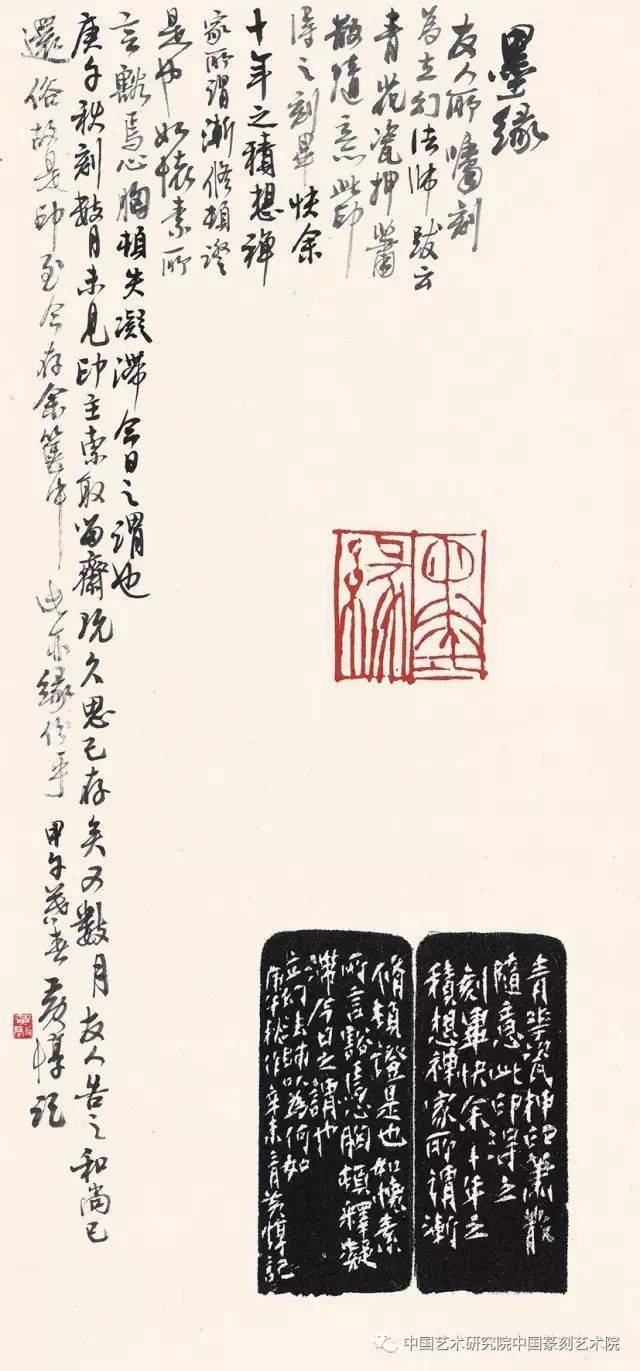 墨缘
友人所嘱刻
為立幻法师跋云
青花瓷押萧
散随意此印
得之刻畢快余
十年之積想禅
家所谓渐修顿證
是也如懷素所
言豁焉心胸顿失凝滞今日之谓也
庚午秋刻数月未见印主索取留齋既久思已存矣又数月友人告之和尚已
還俗故是印至今存余箧中此亦缘份乎
甲午暮春黄惇记
墨缘
青花瓷押印萧散
随意此印得之
刻畢快余十年之
積想禅家所谓渐
修顿證是也如懷素
所言豁焉心胸顿釋凝
滞今日之謂也
立幻法师以為何如
庚午秋作辛未黄惇記
中国艺术研究院中国篆刻艺术院